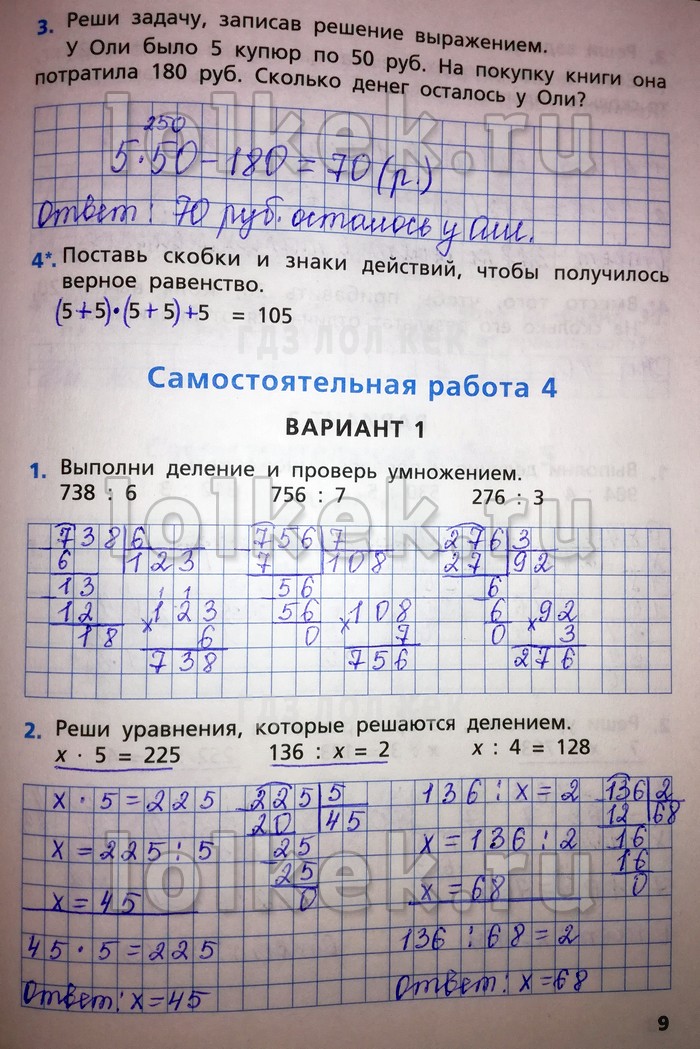 3. Реши задачу, записав решение выражением.
У Оли было 5 купюр по 50 руб. На покупку книги она
потратила 180 руб. Сколько денег осталось у Оли?
250
5·50-180=70(р.)
Ответ: 70 руб. осталось у Оли.
4*. Поставь скобки и знаки действий, чтобы получилось
верное равенство.
(5+5)·(5+5)+5 = 105
гдз лол кек
Самостоятельная работа 4
ВАРИАНТ 1
1. Выполни деление и проверь умножением.
738 : 6 756 : 7 276 : 3
738 6 756 7 276 3
6 123 7 108 27 92
13 1 1 56 6
12 ×123 56 ×108 6 ×92
18 6 0 7 0 3
738 756 276
2. Реши уравнения, которые решаются делением.
x · 5 = 225 136 : x = 2 x : 4 = 128
x·5=225 225 5 136:x=2 136 2
20 45 12 68
x=225:5 25 x=136:2 16
25 16
x=45 0 x=68 0
45·5=225 136:68=2
Ответ: x=45 Ответ: x=68
9
lolkek.ru
lolkek.ru
lolkek.ru